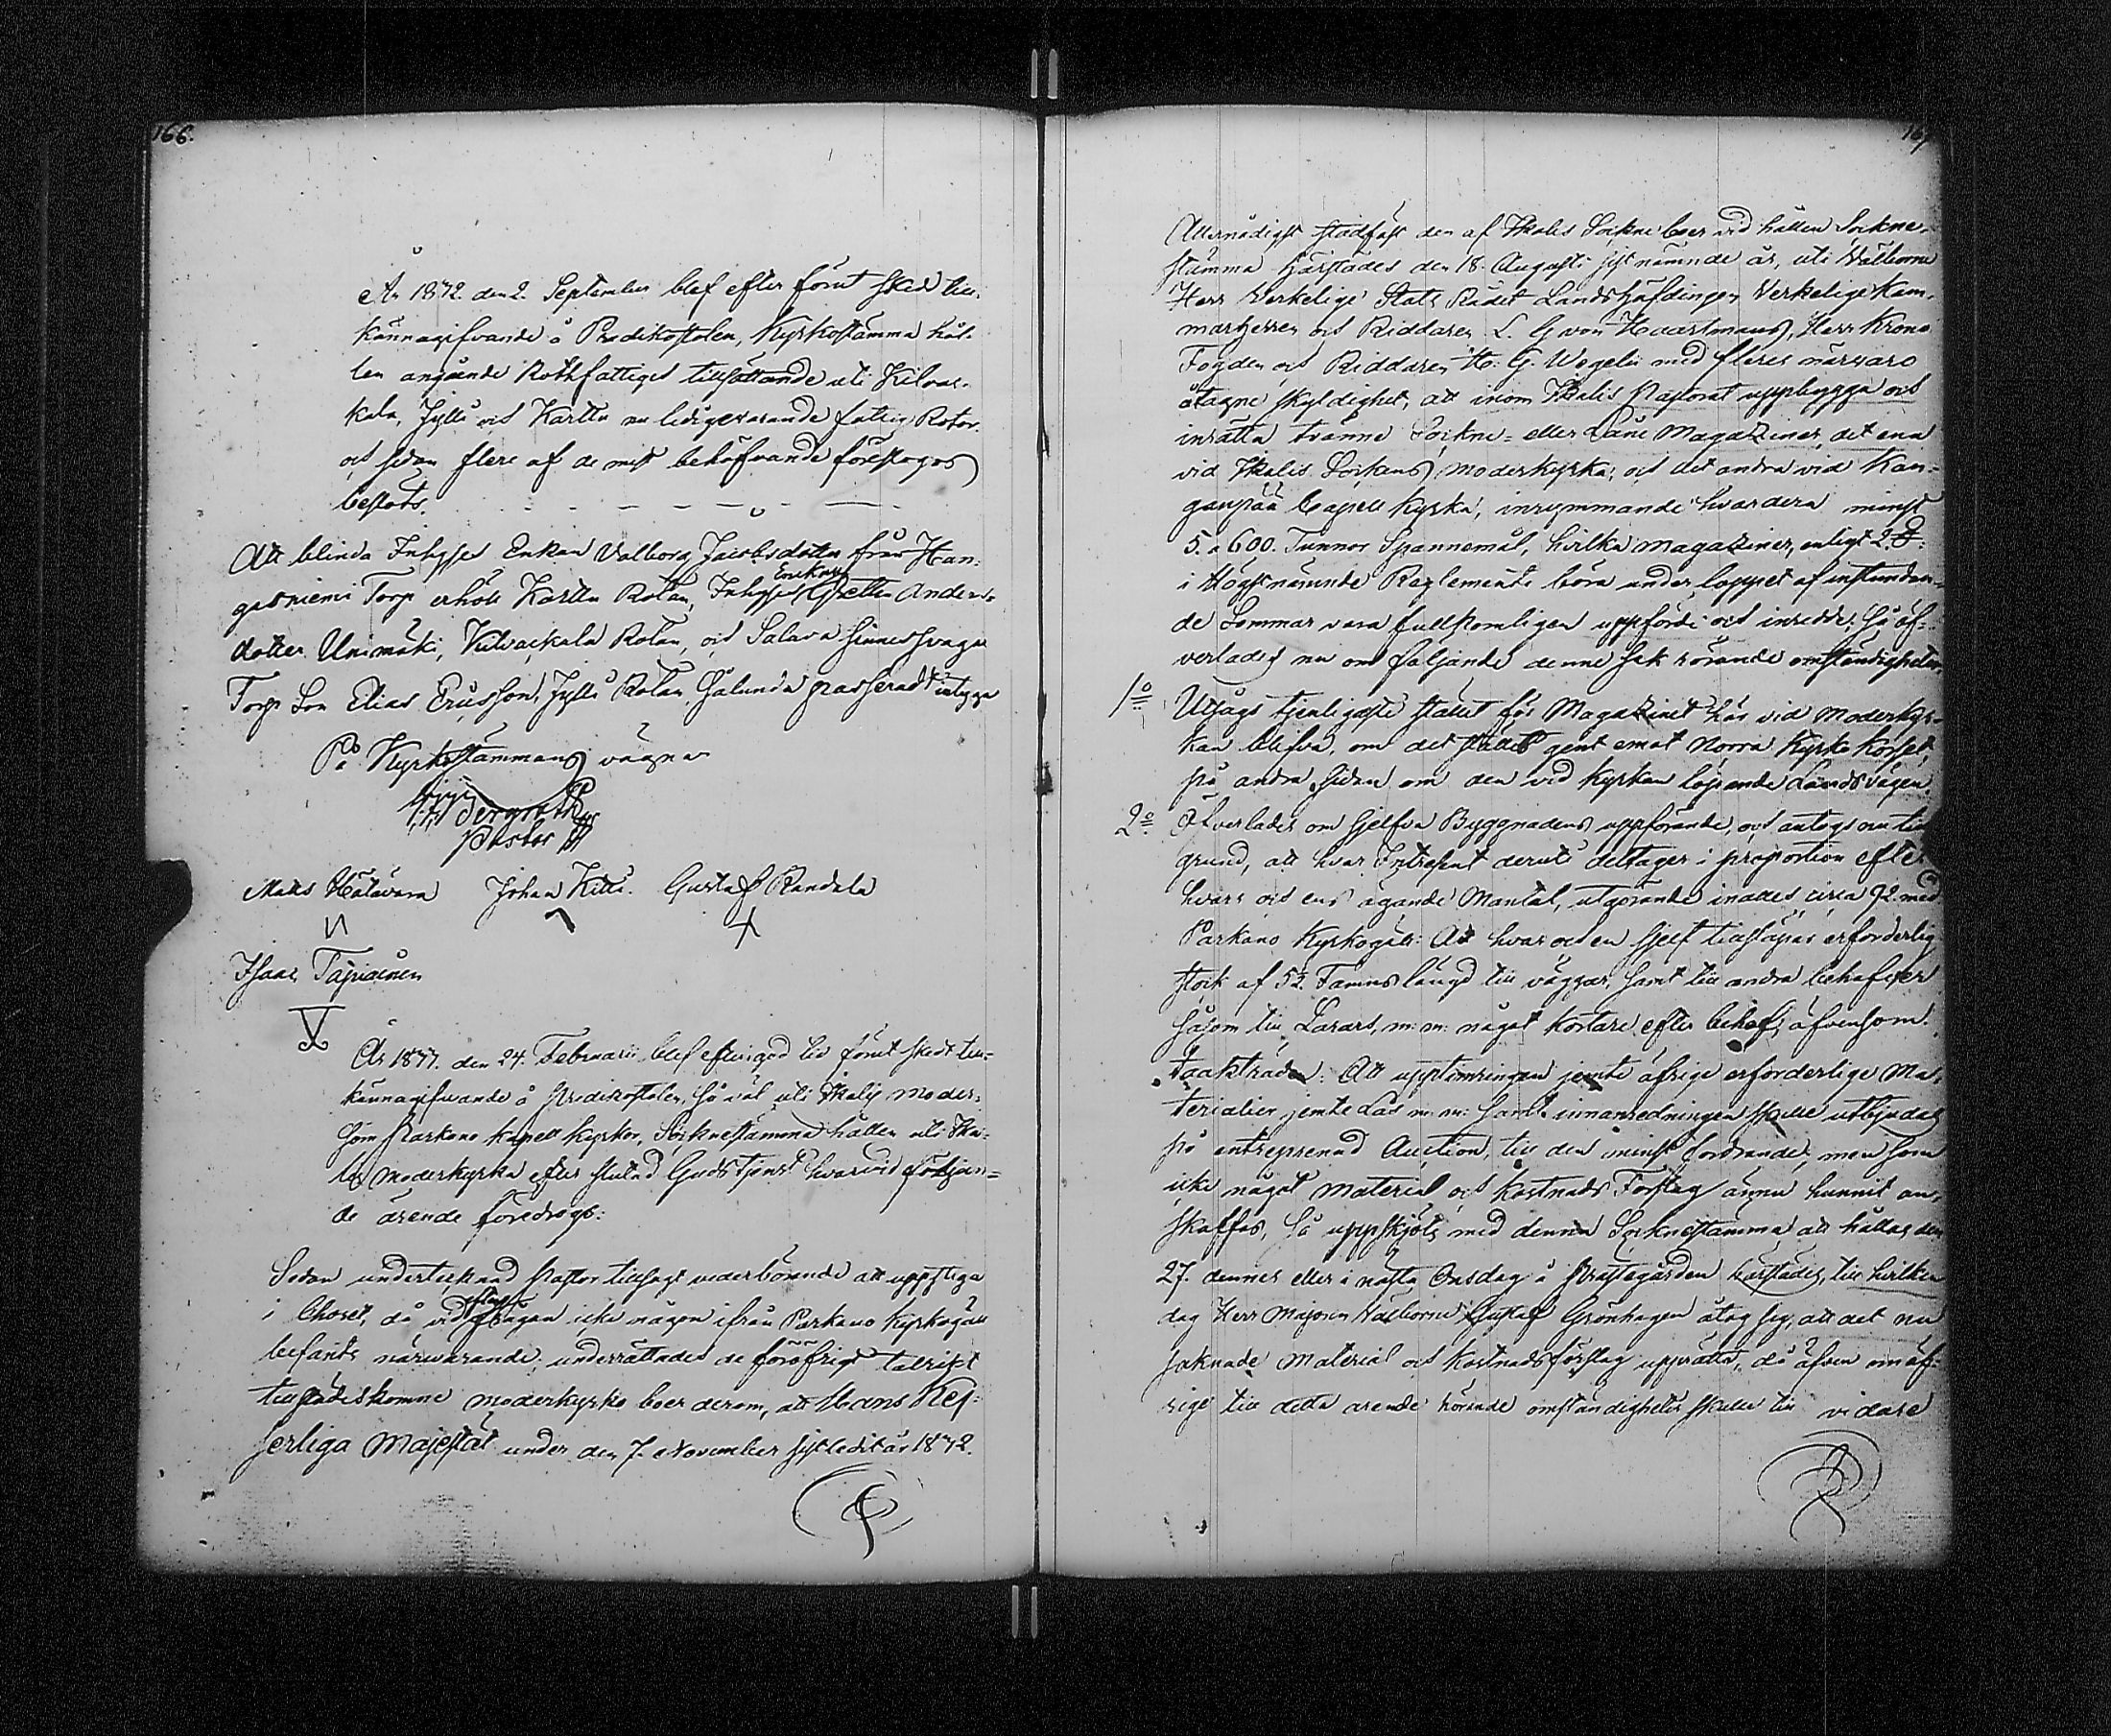 166.
År 1872. den 2. September blef efter förut skedd till-
kännagifvande å Predikostolen, Kyrkostämma hål-
len angående Rothfattiges tillsättande uti Kilvac-
kala, Jylli och Karttu nu ledigvarande fattig Rotor.
och sedan flere af de mest behöfvande föreslagos
beslöts.
Att blinda Inhyses Enkan Valborg Jacobsdotter från Han-
gasniemi Torp erhöll Karttu Rotan, Inhyses Enkan Anders-
dotter Unimäki, Kilvackala Rotan, och Salava sinnessvaga
Torp Son Elias Ericsson, Jylli Rotan. Sålunda passeradt intyga
På Kyrkostämmans vägnar
Bergroth
Pastor
Matts Hatavara Johan Kitti. Gustaf Randala
Isaac Tapiainen
År 1877. den 24. Februarii blef efter i god tid förut skedt till-
kännagifvande å Predikostolen, så väl uti Ikalis Moder-
som Parkano Kapell Kyrkor, Socknestämma hållen uti Ika-
lis Moderkyrka efter slutad Gudstjenst hvarvid följan-
de ärende föredrogs:
Sedan undertecknad Pastor tillsagt vederbörande att uppstiga
i Choret, då vid efterfrågan icke någon ifrån Parkano Kyrkogäll
befants närvarande; underrättades de föröfrigt talrikt
tillstädeskomne moderkyrko boer derom, att Hans Kej-
serliga Majestät under den 7. November sistledit år 1872.
167
Allernådigst stadfäst den af Ikalis Sockneboer vid hållen Sockne-
stämma härstädes den 18. Augusti sistnämnde år, uti Välborne
Herr Verkelige Stats Rådet Landshöfdingen Verkelige Kam-
marherren och Riddaren L. G von Haartmans, Herr Krono
Fogden och Riddaren H. G. Wegelii med fleres närvaro
åtagne skyldighet, att inom Ikalis Pastorat uppbygga och
inrätta tvänne Sockne- eller Låne Magaziner, det ena
vid Ikalis Sockens moderkyrka; och det andra vid Kan-
ganpää Capell Kyrka, inrymmande hvardera minst
5. a 600. Tunnor Spannemål, hvilka magaziner, enligt 2. §.
i Högstnämnde Reglemente böra under loppet af instundan-
de Sommar vara fullkomligen uppförde och inredde; Så öf-
verlades nu om följande denne sak rörande omständigheter,
1o Utsågs tjenligaste stället för Magazinet här vid Moderkyr-
kan blifva, om det stället gent emot Norra Kyrko Korset,
på andra sidan om den vid Kyrkan löpande Landsvägen.
2o Öfverlades om sjelfva Byggnadens uppförande, och antogs om till
grund, att hvar Intressent deruti deltager i proportion efter
hvars och ens ägande Mantal, utgörande inalles circa 92 med
Parkano Kyrkogäll: Att hvar och en sjelf tillsläpar erforderlig
stock af 5½ Famns längd till väggar, samt till andra behofver
såsom till Larars, m: m: något kortare efter behof, äfvensom
taakträden: Att upptimringen jemte öfrige erforderlige Ma-
terialier jemte Lås m: m: samt innanredningen skulle utbjudas
på entreprenad Auction, till den minst fordrande; men som
icke något Material och Kostnads Förslag ännu hunnit an-
skaffas, så uppskjöts med denna Socknestämma att hållas den
27. dennes eller i nästa Onsdag å Prästegården härstädes, till hvilken
dag Herr Majoren Välborne Gustaf Grönhagen åtog sig, att det nu
saknade Material och Kostnadsförslag upprätta, då äfven om öf-
rige till detta ärende hörande omständigheter skulle till vidare